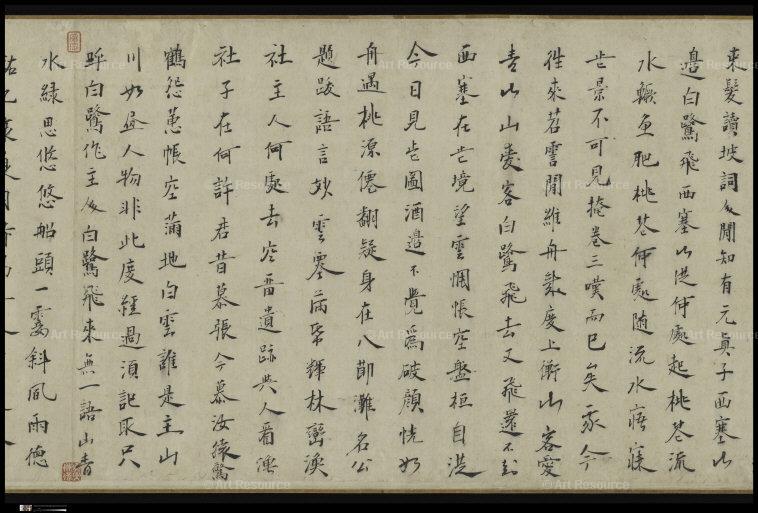 束髮讀坡詞又聞知有元真子西塞山
邊白鷺飛西塞山從何處起桃花流
水鱖魚肥桃花何處隨流水寤寐
此景不可見掩卷三嘆而已矣我今
往來苕霅間維舟幾度上衡山客愛
青山山愛客白鷺飛去又飛還不到
西塞在此境望雲惆悵空盤桓自從
今日見此圖酒邊不覺為破顏恍如
舟過桃源僊翻疑身在八節灘名公
題跋語言妙雲霧滿紙輝林巒渙
社主人何處去空留遺跡與人看漁
社子在何許君昔慕張今慕汝猿驚
鶴怨蕙帳空蒲地白雲誰是主山
川如昼人物非此度經過須記取只
呼白鷺作主人白鷺飛來無一語山青
水綠思悠悠船頭一霎斜風雨德
Art Resource